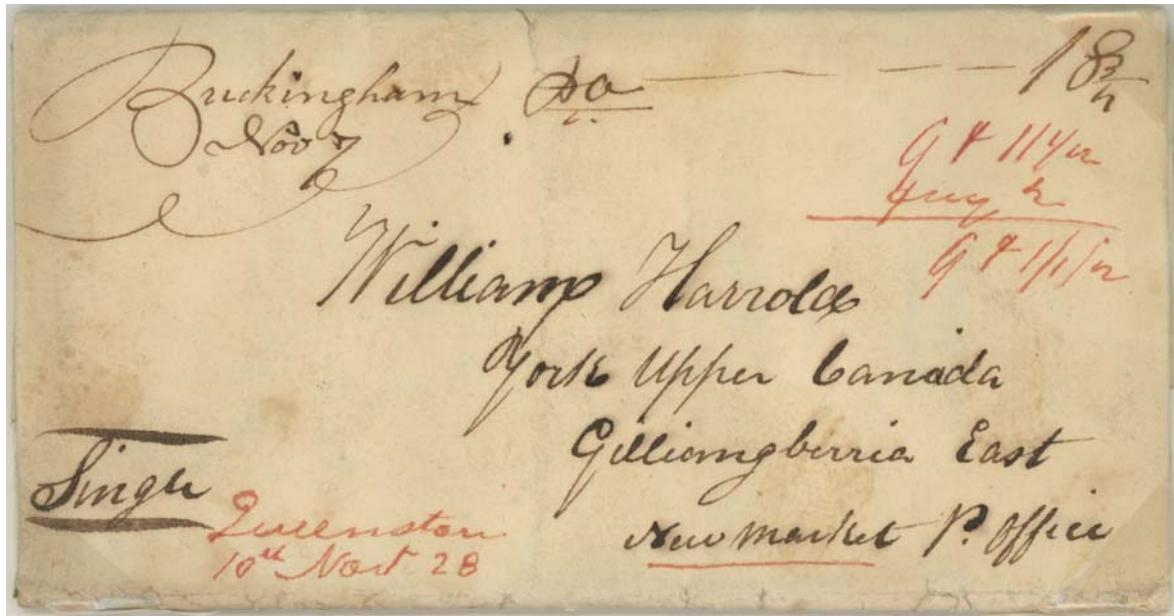 Buckingham Pa — — — 18 3/4
Nov 7
9 & 11 1/2
ferry 2
9 & 1/1 1/2
William Harrold
York Upper Canada
Gilliamgberria East
Single
New Market P. Office
Queenston
10th Novr 28